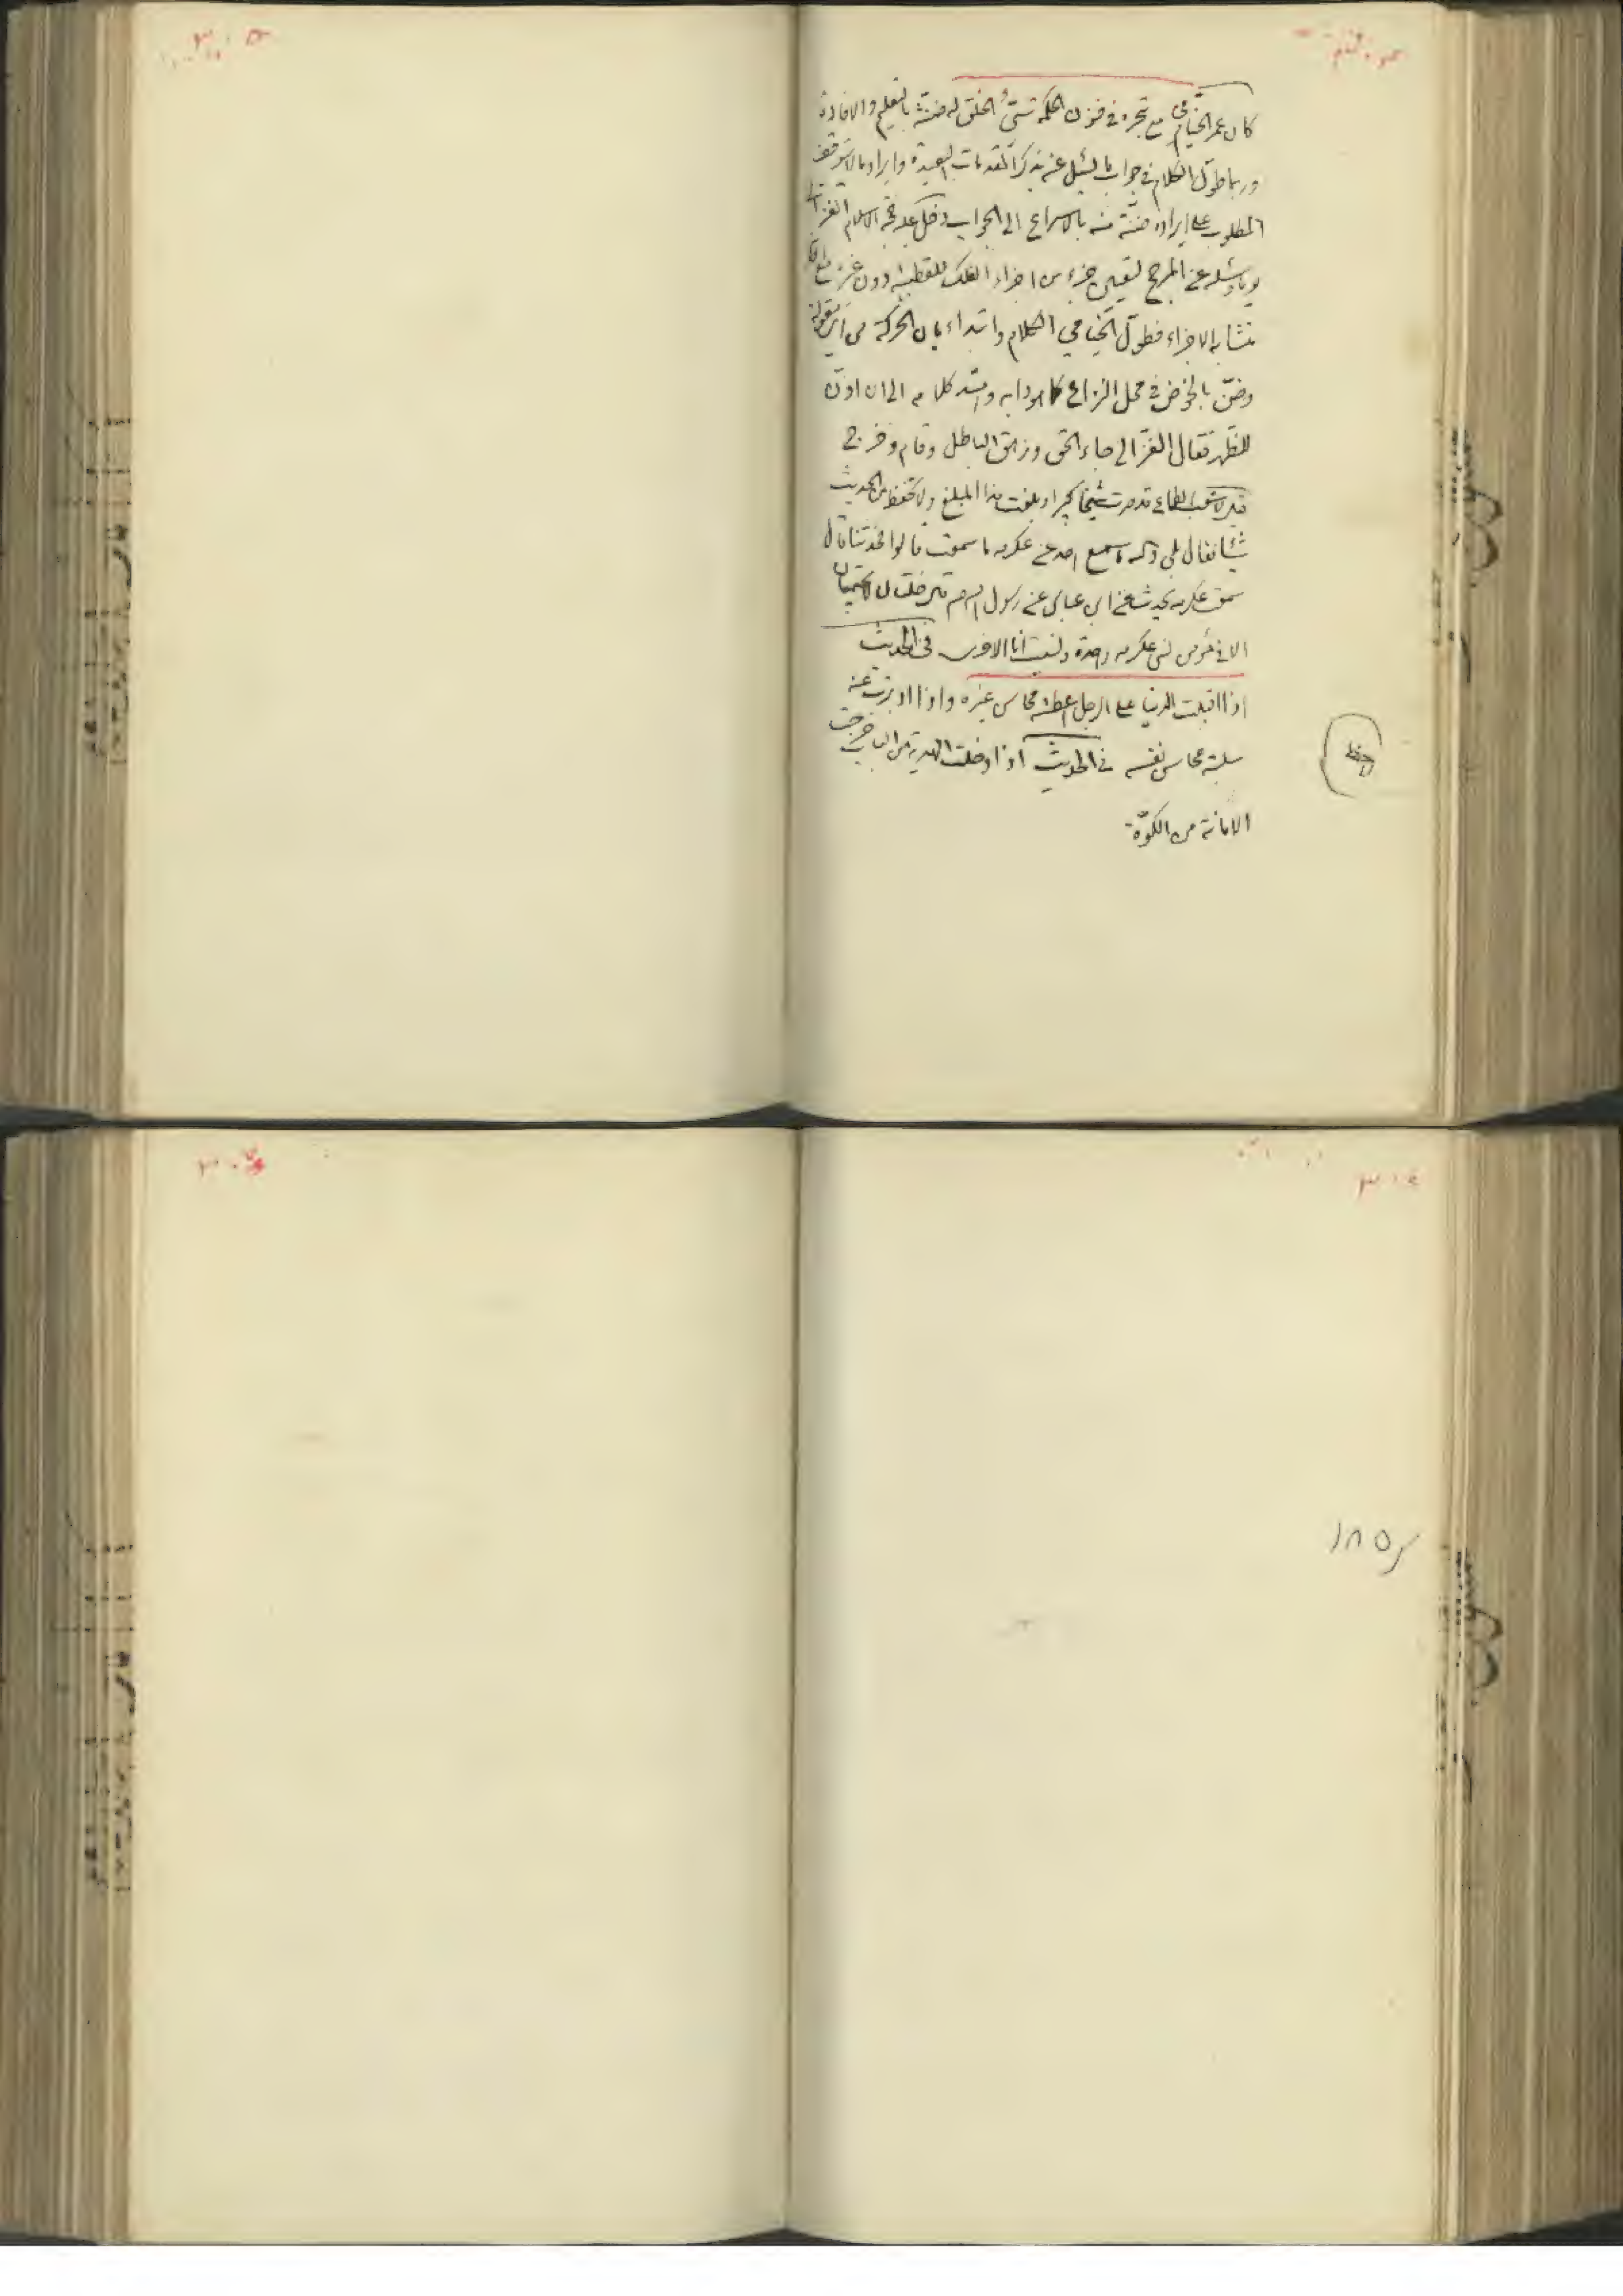 كان عمر الخيامي مع تبحره في فنون الحكمة سيّئ الخلق له ضنة بالتعليم والافادة
وربما طوّل الكلام في جواب ما يسئل عنه بذكر المقدمات البعيدة وايراد ما لا يتوقف
المطلوب على ايراده ضنّة منه بالاسراع الى الجواب دخل عليه حجة الاسلام الغزالي
يوما وسئله عن المرجح لتعيين جزء من اجزاء الفلك للقطبية دون غيره مع انه
متشابه الاجزاء فطوّل الخيامي الكلام وابتداء بان الحركة من اي مقولة
وضنّ بالخوض في محل النزاع كما هو دابه وامتد كلامه الى ان اذّن
للظهر فقال الغزالي جاء الحق وزهق الباطل وقام وخرج
قيل لاشعب الطماع قد صرت شيخا كبيرا وبلغت هذا المبلغ ولا تحفظ من الحديث
شيئا فقال بلى والله ما سمع احد عن عكرمه ما سمعت قالوا فحدثنا قال
سمعت عكرمه يحدث عن ابن عباس عن رسول الله ص قال خلتان لا تجتمعان
الا في مؤمن نسى عكرمه واحدة ونسيت انا الاخرى في الحديث
اذا اقبلت الدنيا على الرجل اعطته محاسن غيره واذا ادبرت عنه
سلبته محاسن نفسه في الحديث اذا دخلت الهدية من الباب خرجت
الامانة من الكوّة